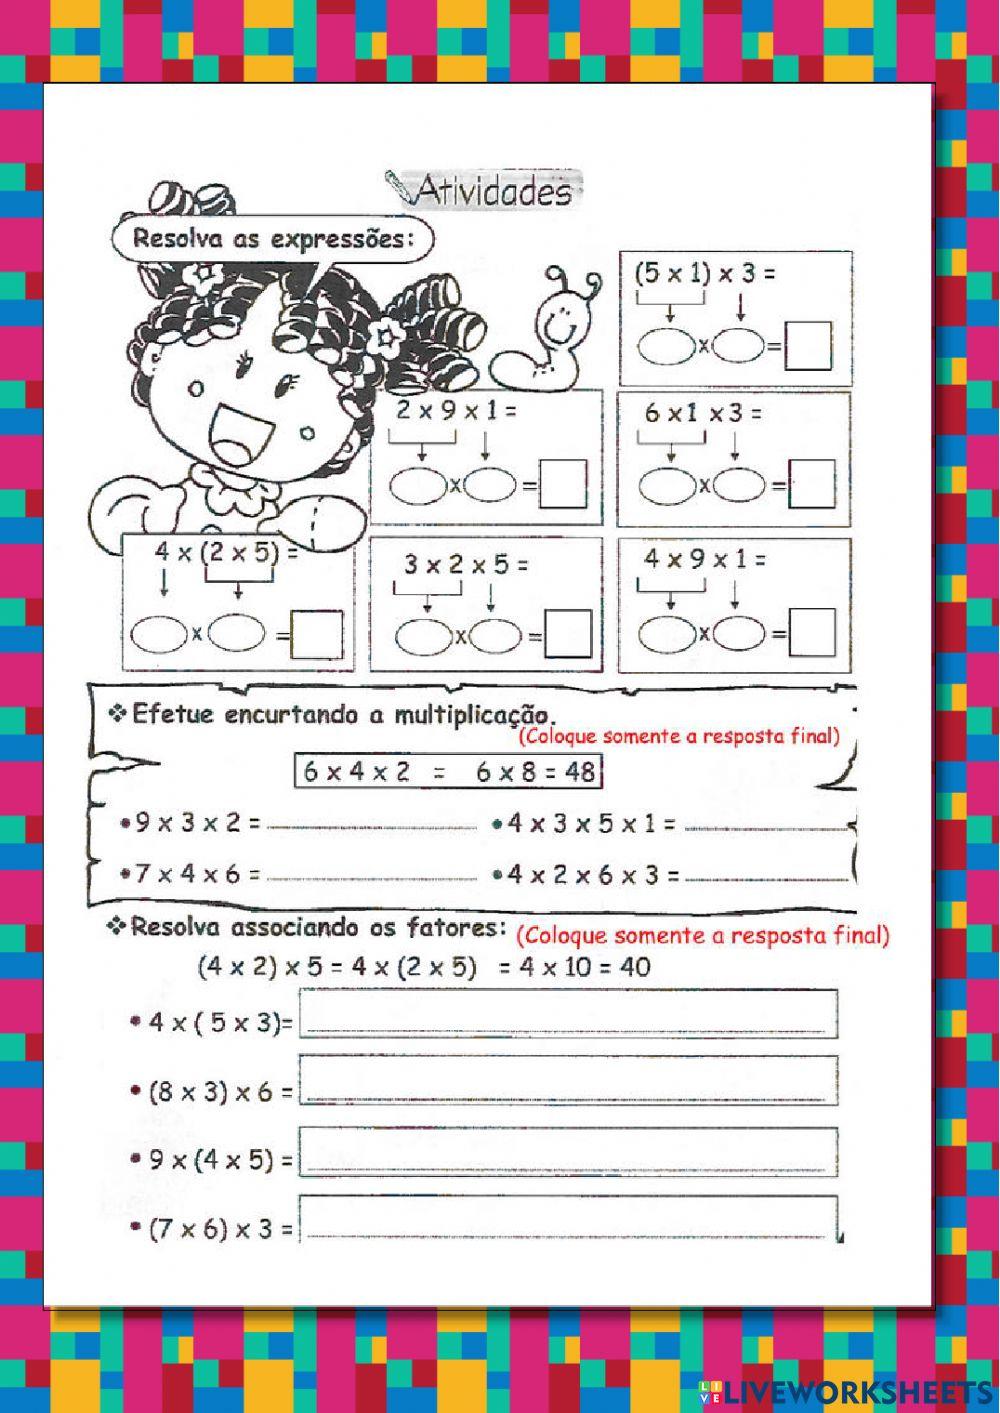 Atividades
Resolva as expressões:
(5 x 1) x 3 =
x =
2 x 9 x 1 =
x =
6 x1 x 3 =
x =
4 x (2 x 5) =
x =
3 x 2 x 5 =
x =
4 x 9 x 1 =
x =
❖ Efetue encurtando a multiplicação.
(Coloque somente a resposta final)
6 x 4 x 2 = 6 x 8 = 48
• 9 x 3 x 2 =
• 4 x 3 x 5 x 1 =
• 7 x 4 x 6 =
• 4 x 2 x 6 x 3 =
❖ Resolva associando os fatores: (Coloque somente a resposta final)
(4 x 2) x 5 = 4 x (2 x 5) = 4 x 10 = 40
• 4 x ( 5 x 3)=
• (8 x 3) x 6 =
• 9 x (4 x 5) =
• (7 x 6) x 3 =
LIVE LIVEWORKSHEETS